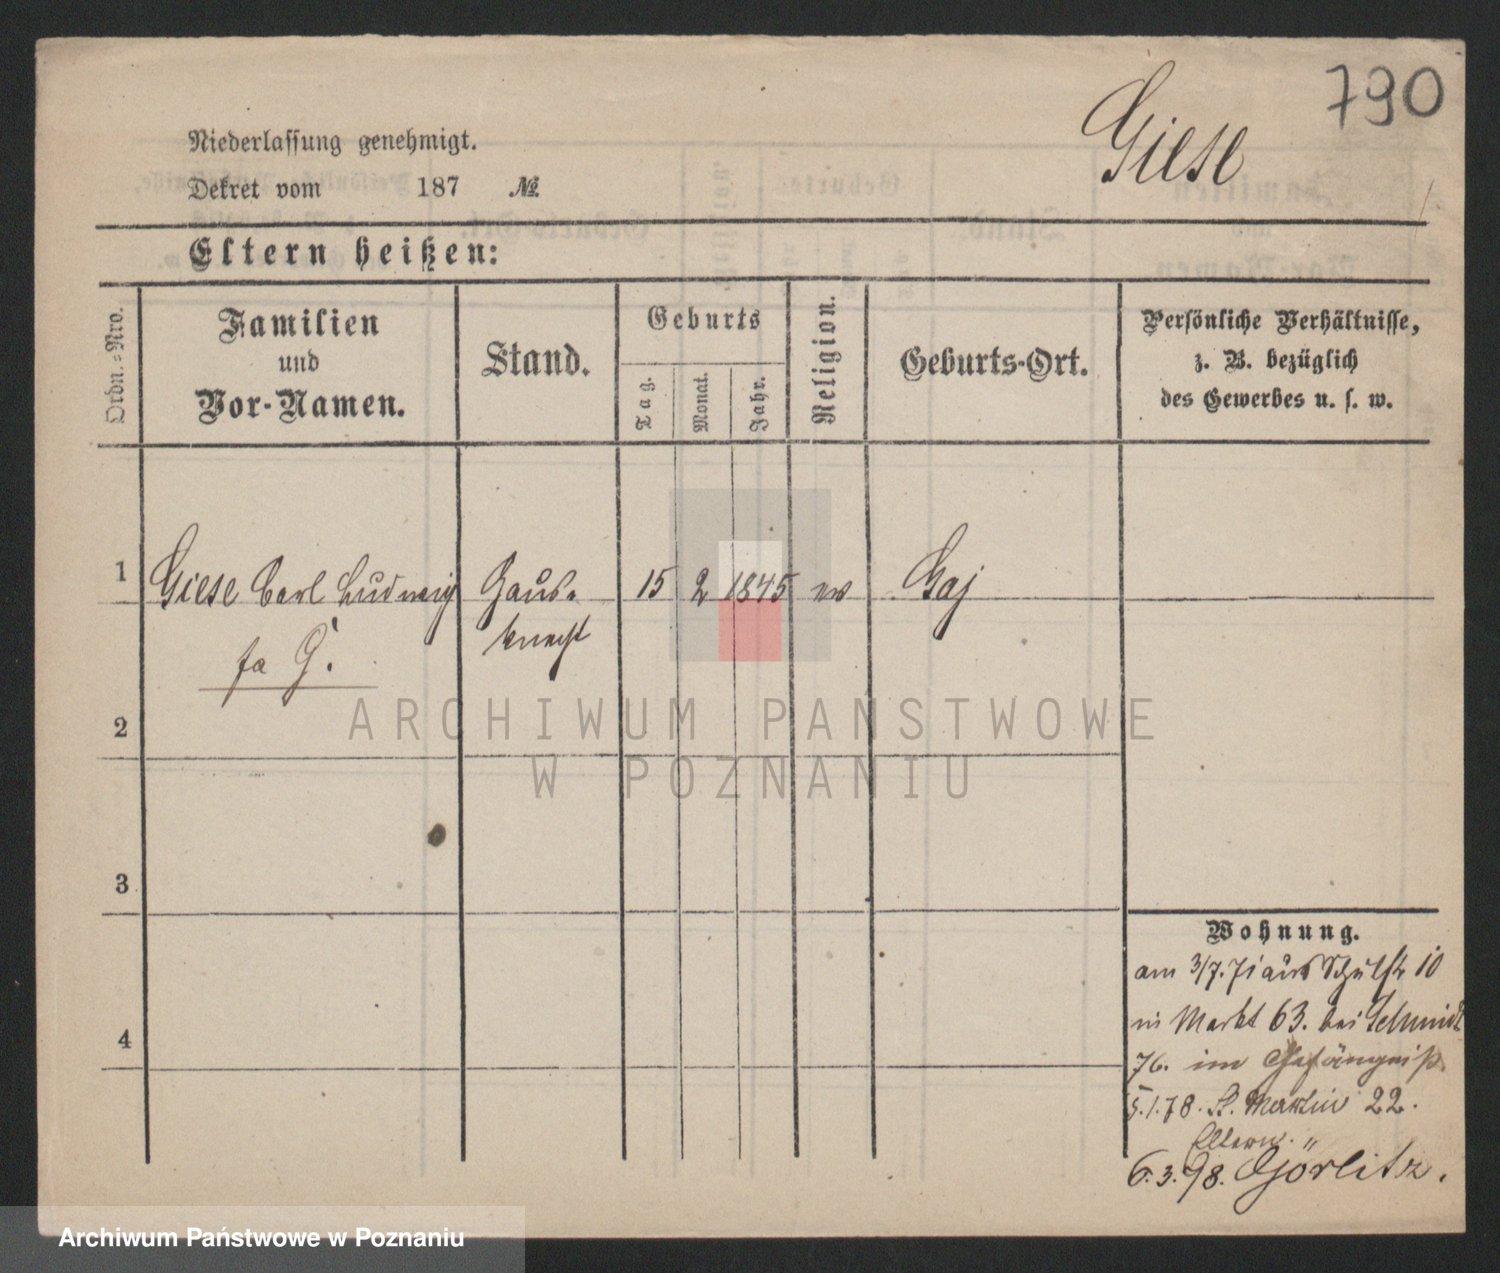 790
Giese
Niederlassung genehmigt.
Dekret vom 187 №
Eltern heißen:
Ordn.-Nro.
Familien
und
Vor-Namen.
Stand.
Geburts
Tag.
Monat.
Jahr.
Religion.
Geburts-Ort.
Persönliche Verhältnisse,
z. B. bezüglich
des Gewerbes u. s. w.
1 Giese Carl Ludwig Haus- 15 2 1845 Gaj
knecht
fa G.
2
3
4
Wohnung.
am 3/7.71 aus Schulstr 10
in Markt 63. bei Schmidt
76. im Gefängniß
5.1.78. St. Martin 22.
Eltern. "
6.3.98. Görlitz.
ARCHIWUM PAŃSTWOWE
W POZNANIU
Archiwum Państwowe w Poznaniu